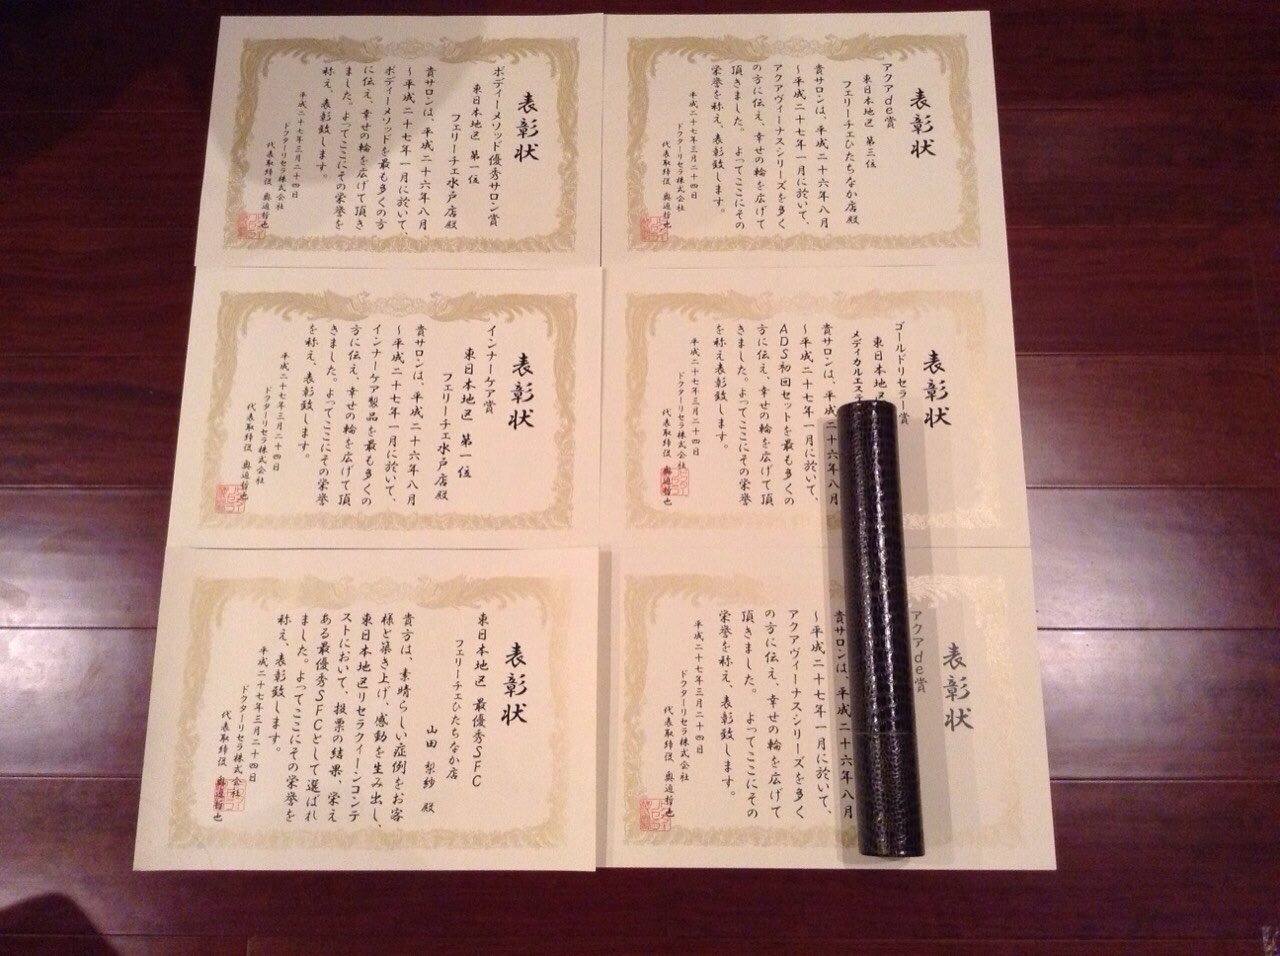 表彰状
ボディーメソッド優秀サロン賞
東日本地区 第一位
フェリーチェ水戸店殿
貴サロンは、平成二十六年八月
〜平成二十七年一月に於いて、
ボディーメソッドを最も多くの方
に伝え、幸せの輪を広げて頂き
ました。よってここにその栄誉を
称え、表彰致します。
平成二十七年三月二十四日
ドクターリセラ株式会社
代表取締役 奥迫哲也
表彰状
アクアde賞
東日本地区 第三位
フェリーチェひたちなか店殿
貴サロンは、平成二十六年八月
〜平成二十七年一月に於いて、
アクアヴィーナスシリーズを多く
の方に伝え、幸せの輪を広げて
頂きました。よってここにその
栄誉を称え、表彰致します。
平成二十七年三月二十四日
ドクターリセラ株式会社
代表取締役 奥迫哲也
表彰状
インナーケア賞
東日本地区 第一位
フェリーチェ水戸店殿
貴サロンは、平成二十六年八月
〜平成二十七年一月に於いて、
インナーケア製品を最も多くの
方に伝え、幸せの輪を広げて頂
きました。よってここにその栄誉
を称え、表彰致します。
平成二十七年三月二十四日
ドクターリセラ株式会社
代表取締役 奥迫哲也
表彰状
ゴールドリセラー賞
東日本地区
メディカルエステ
貴サロンは、平成二十六年八月
〜平成二十七年一月に於いて、
ADS初回セットを最も多くの
方に伝え、幸せの輪を広げて頂
きました。よってここにその栄誉
を称え、表彰致します。
平成二十七年三月二十四日
ドクターリセラ株式会社
代表取締役 奥迫哲也
表彰状
東日本地区 最優秀SFC
フェリーチェひたちなか店
山田 梨紗 殿
貴方は、素晴らしい症例をお客
様と築き上げ、感動を生み出し、
東日本地区リセラクィーンコンテ
ストにおいて、投票の結果、栄え
ある最優秀SFCとして選ばれ
ました。よってここにその栄誉を
称え、表彰致します。
平成二十七年三月二十四日
ドクターリセラ株式会社
代表取締役 奥迫哲也
表彰状
アクアde賞
貴サロンは、平成二十六年八月
〜平成二十七年一月に於いて、
アクアヴィーナスシリーズを多く
の方に伝え、幸せの輪を広げて
頂きました。よってここにその
栄誉を称え、表彰致します。
平成二十七年三月二十四日
ドクターリセラ株式会社
代表取締役 奥迫哲也